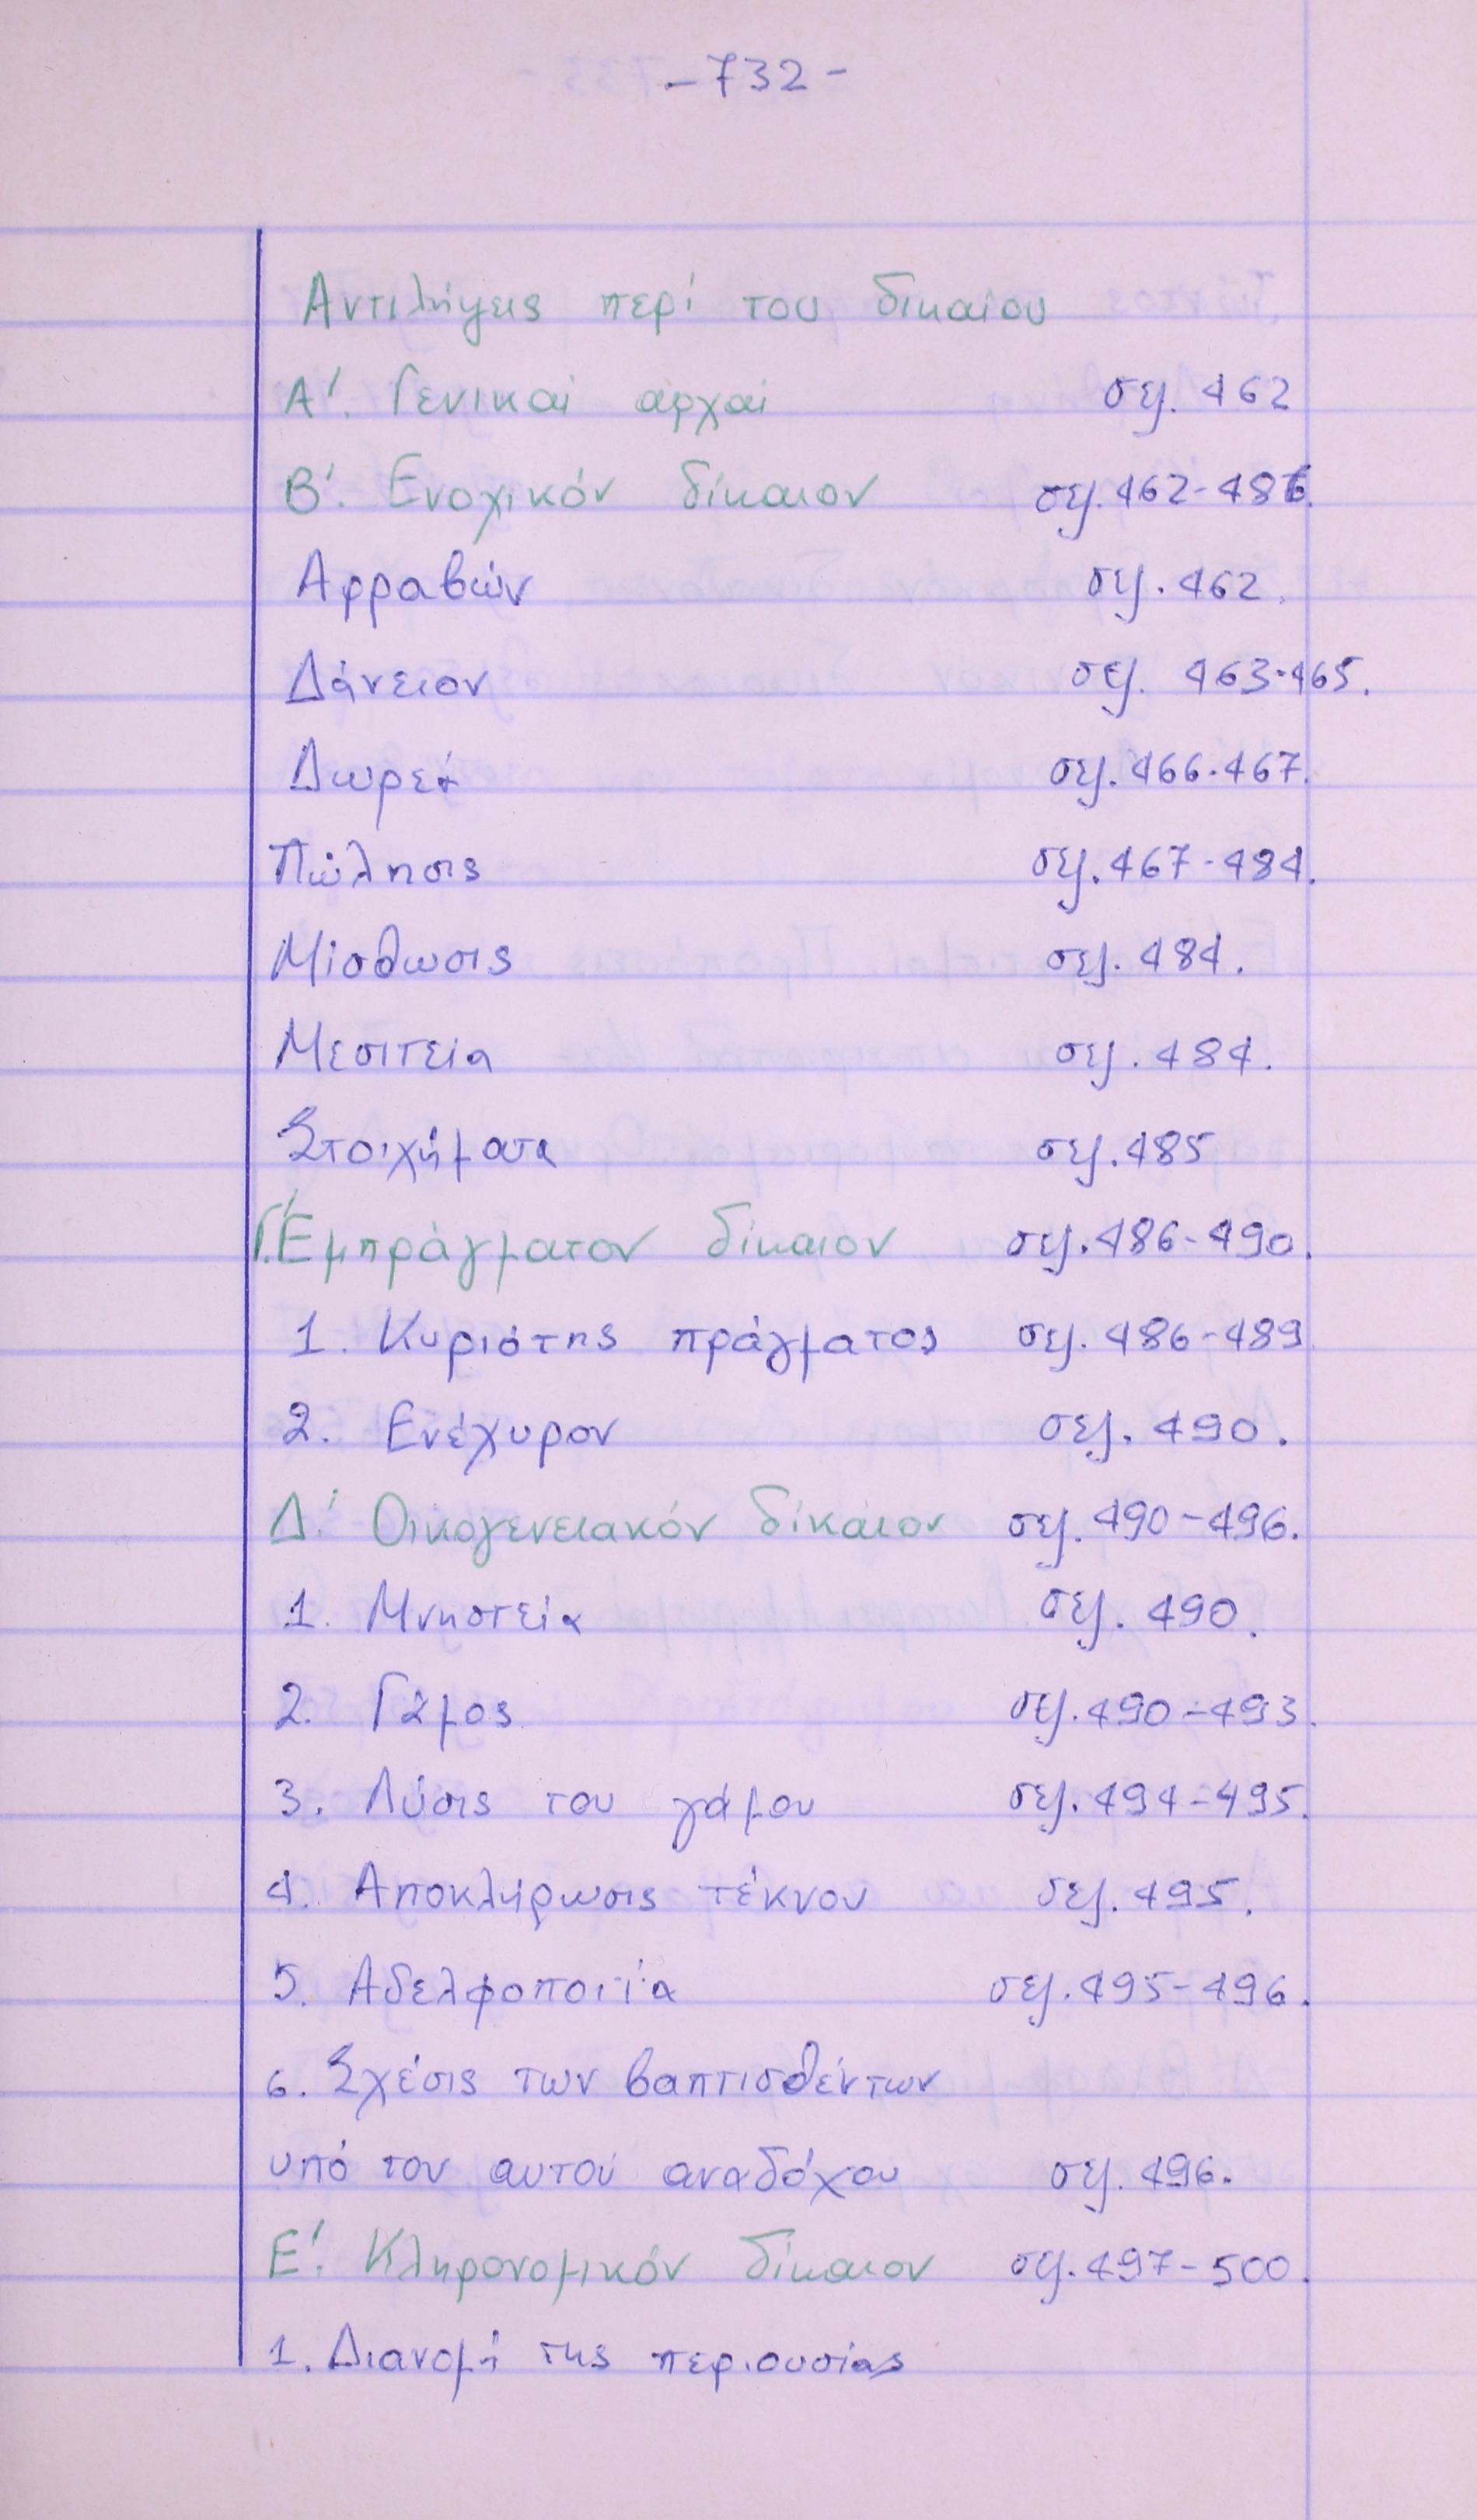 - 732 -
Αντιλήψεις περί του δικαίου
Α'. Γενικαί αρχαί σελ. 462
Β'. Ενοχικόν δίκαιον σελ. 462-486.
Αρραβών σελ. 462.
Δάνειον σελ. 463-465.
Δωρεά σελ. 466-467.
Πώλησις σελ. 467-484.
Μίσθωσις σελ. 484.
Μεσιτεία σελ. 484.
Στοιχήματα σελ. 485
Γ'. Εμπράγματον δίκαιον σελ. 486-490.
1. Κυριότης πράγματος σελ. 486-489
2. Ενέχυρον σελ. 490.
Δ'. Οικογενειακόν δίκαιον σελ. 490-496.
1. Μνηστεία σελ. 490.
2. Γάμος σελ. 490-493.
3. Λύσις του γάμου σελ. 494-495.
4. Αποκλήρωσις τέκνου σελ. 495.
5. Αδελφοποιία σελ. 495-496.
6. Σχέσις των βαπτισθέντων
υπό του αυτού αναδόχου σελ. 496.
Ε'. Κληρονομικόν δίκαιον σελ. 497-500.
1. Διανομή της περιουσίας